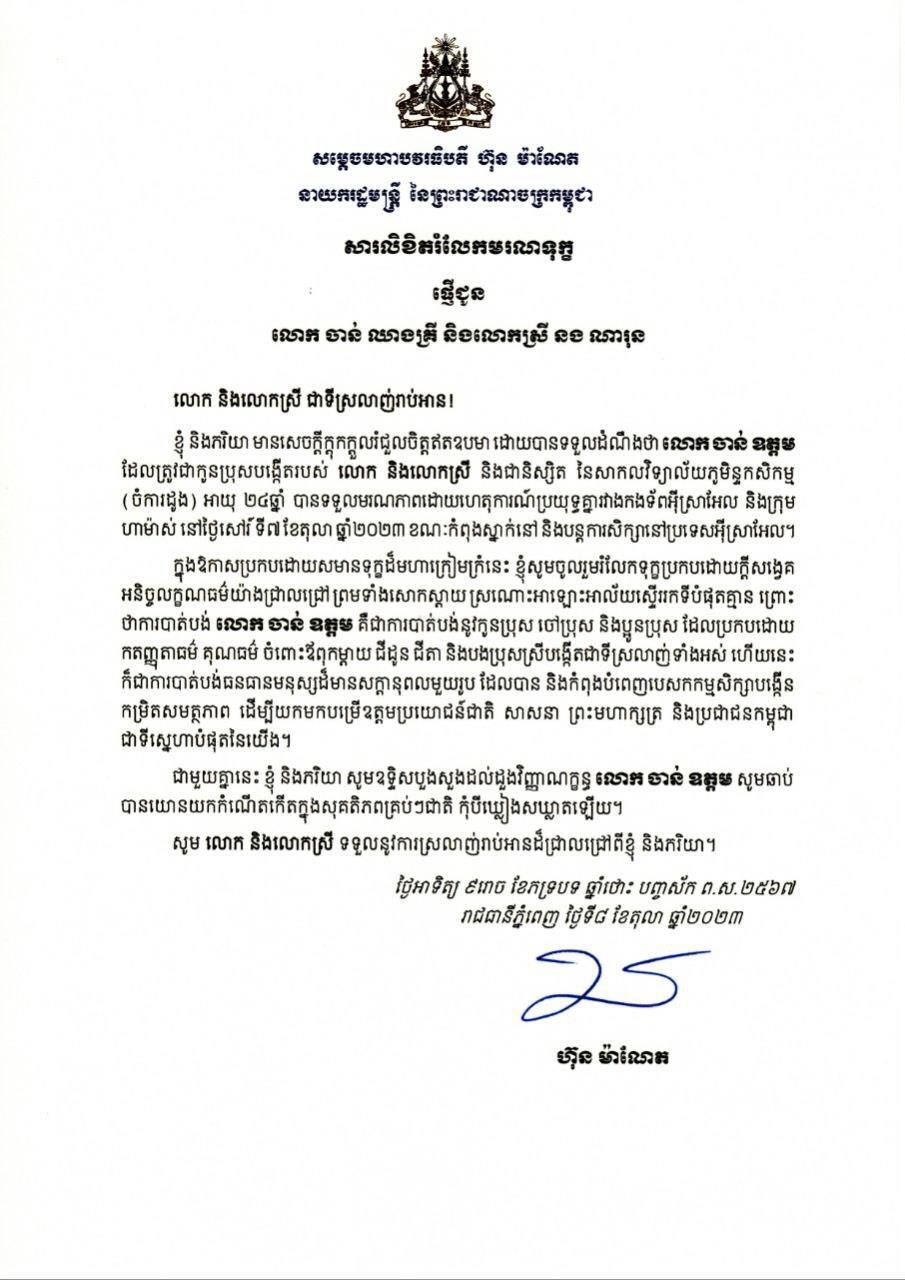 សម្តេចមហាបវរធិបតី ហ៊ុន ម៉ាណែត
នាយករដ្ឋមន្ត្រី នៃព្រះរាជាណាចក្រកម្ពុជា
សារលិខិតរំលែកមរណទុក្ខ
ផ្ញើជូន
លោក ចាន់ ឈាងគ្រី និងលោកស្រី នង ណារុន
លោក និងលោកស្រី ជាទីស្រលាញ់រាប់អាន!
ខ្ញុំ និងភរិយា មានសេចក្តីក្តុកក្តួលរំជួលចិត្តឥតឧបមា ដោយបានទទួលដំណឹងថា លោក ចាន់ ឧត្តម
ដែលត្រូវជាកូនប្រុសបង្កើតរបស់ លោក និងលោកស្រី និងជានិស្សិត នៃសាកលវិទ្យាល័យភូមិន្ទកសិកម្ម
(ចំការដូង) អាយុ ២៤ឆ្នាំ បានទទួលមរណភាពដោយហេតុការណ៍ប្រយុទ្ធគ្នារវាងកងទ័ពអ៊ីស្រាអែល និងក្រុម
ហាម៉ាស់ នៅថ្ងៃសៅរ៍ ទី៧ ខែតុលា ឆ្នាំ២០២៣ ខណៈកំពុងស្នាក់នៅ និងបន្តការសិក្សានៅប្រទេសអ៊ីស្រាអែល។
ក្នុងឱកាសប្រកបដោយសមានទុក្ខដ៏មហាក្រៀមក្រំនេះ ខ្ញុំសូមចូលរួមរំលែកទុក្ខប្រកបដោយក្តីសង្វេគ
អនិច្ចលក្ខណធម៌យ៉ាងជ្រាលជ្រៅ ព្រមទាំងសោកស្តាយ ស្រណោះអាឡោះអាល័យស្ទើររកទីបំផុតគ្មាន ព្រោះ
ថាការបាត់បង់ លោក ចាន់ ឧត្តម គឺជាការបាត់បង់នូវកូនប្រុស ចៅប្រុស និងប្អូនប្រុស ដែលប្រកបដោយ
កតញ្ញុតាធម៌ គុណធម៌ ចំពោះឪពុកម្តាយ ជីដូន ជីតា និងបងប្រុសស្រីបង្កើតជាទីស្រលាញ់ទាំងអស់ ហើយនេះ
ក៏ជាការបាត់បង់ធនធានមនុស្សដ៏មានសក្តានុពលមួយរូប ដែលបាន និងកំពុងបំពេញបេសកកម្មសិក្សាបង្កើន
កម្រិតសមត្ថភាព ដើម្បីយកមកបម្រើឧត្តមប្រយោជន៍ជាតិ សាសនា ព្រះមហាក្សត្រ និងប្រជាជនកម្ពុជា
ជាទីស្នេហាបំផុតនៃយើង។
ជាមួយគ្នានេះ ខ្ញុំ និងភរិយា សូមឧទ្ទិសបួងសួងដល់ដួងវិញ្ញាណក្ខន្ធ លោក ចាន់ ឧត្តម សូមឆាប់
បានយោនយកកំណើតកើតក្នុងសុគតិភពគ្រប់ៗជាតិ កុំបីឃ្លៀងសឃ្លាតឡើយ។
សូម លោក និងលោកស្រី ទទួលនូវការស្រលាញ់រាប់អានដ៏ជ្រាលជ្រៅពីខ្ញុំ និងភរិយា។
ថ្ងៃអាទិត្យ ៩រោច ខែភទ្របទ ឆ្នាំថោះ បញ្ចស័ក ព.ស.២៥៦៧
រាជធានីភ្នំពេញ ថ្ងៃទី៨ ខែតុលា ឆ្នាំ២០២៣
ហ៊ុន ម៉ាណែត